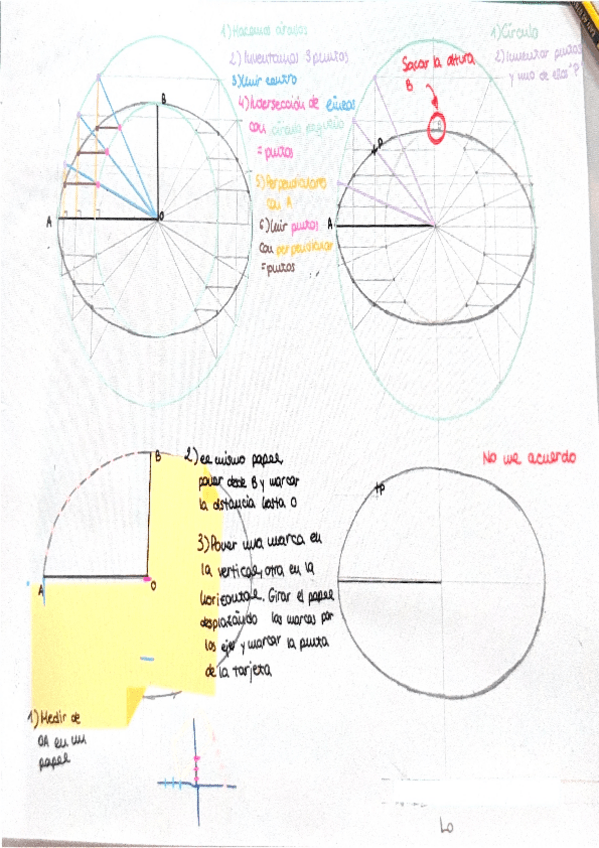 1) Hacemos círculos
2) Inventamos 3 puntos
3) Unir centro
4) Intersección de líneas
con círculo pequeño
= puntos
5) Perpendiculares
con A
6) Unir puntos
con perpendicular
= puntos
B
A
O
1) Círculo
2) Inventar puntos
y uno de ellos "P"
Sacar la altura
B
B
P
A
2) el mismo papel,
poner desde B y marcar
la distancia hasta O
3) Poner una marca en
la vertical, otra en la
horizontal. Girar el papel
desplazando las marcas por
los ejes y marcar la punta
de la tarjeta
B
A
O
1) Medir de
OA en un
papel
No me acuerdo
P
Lo